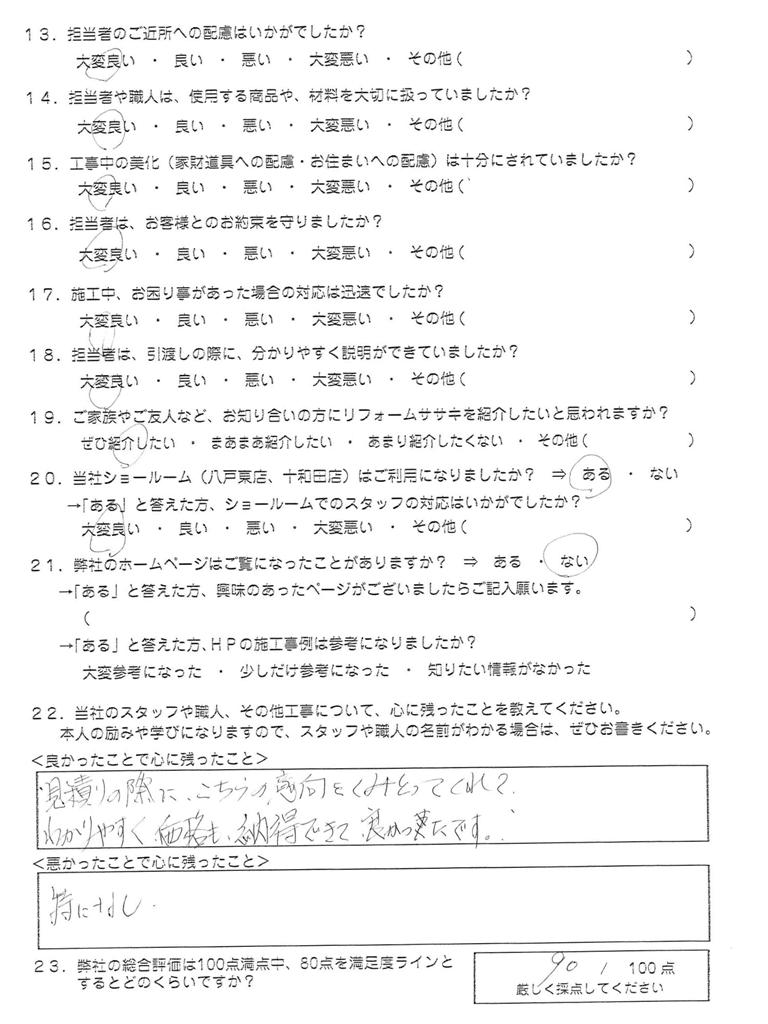 13．担当者のご近所への配慮はいかがでしたか？
大変良い ・ 良い ・ 悪い ・ 大変悪い ・ その他（ ）
14．担当者や職人は、使用する商品や、材料を大切に扱っていましたか？
大変良い ・ 良い ・ 悪い ・ 大変悪い ・ その他（ ）
15．工事中の美化（家財道具への配慮・お住まいへの配慮）は十分にされていましたか？
大変良い ・ 良い ・ 悪い ・ 大変悪い ・ その他（ ）
16．担当者は、お客様とのお約束を守りましたか？
大変良い ・ 良い ・ 悪い ・ 大変悪い ・ その他（ ）
17．施工中、お困り事があった場合の対応は迅速でしたか？
大変良い ・ 良い ・ 悪い ・ 大変悪い ・ その他（ ）
18．担当者は、引渡しの際に、分かりやすく説明ができていましたか？
大変良い ・ 良い ・ 悪い ・ 大変悪い ・ その他（ ）
19．ご家族やご友人など、お知り合いの方にリフォームササキを紹介したいと思われますか？
ぜひ紹介したい ・ まあまあ紹介したい ・ あまり紹介したくない ・ その他（ ）
20．当社ショールーム（八戸東店、十和田店）はご利用になりましたか？ ⇒ ある ・ ない
→「ある」と答えた方、ショールームでのスタッフの対応はいかがでしたか？
大変良い ・ 良い ・ 悪い ・ 大変悪い ・ その他（ ）
21．弊社のホームページはご覧になったことがありますか？ ⇒ ある ・ ない
→「ある」と答えた方、興味のあったページがございましたらご記入願います。
（ ）
→「ある」と答えた方、ＨＰの施工事例は参考になりましたか？
大変参考になった ・ 少しだけ参考になった ・ 知りたい情報がなかった
22．当社のスタッフや職人、その他工事について、心に残ったことを教えてください。
本人の励みや学びになりますので、スタッフや職人の名前がわかる場合は、ぜひお書きください。
＜良かったことで心に残ったこと＞
見積りの際に、こちらの意向をくみとってくれて、
わかりやすく価格も、納得できて良かったです。
＜悪かったことで心に残ったこと＞
特になし．
23．弊社の総合評価は100点満点中、80点を満足度ラインと
するとどのくらいですか？
90 / 100点
厳しく採点してください